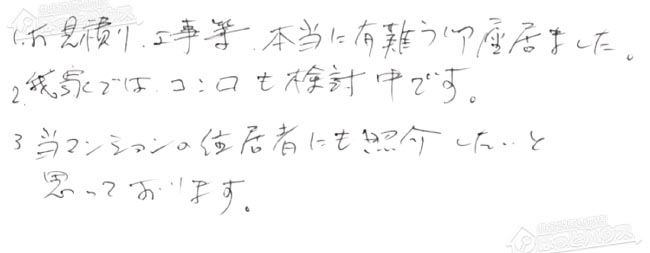 1.お見積り、工事等、本当に有難う御座居ました。
2.我家では、コンロも検討中です。
3 当マンションの住居者にも照介したいと
思っております。